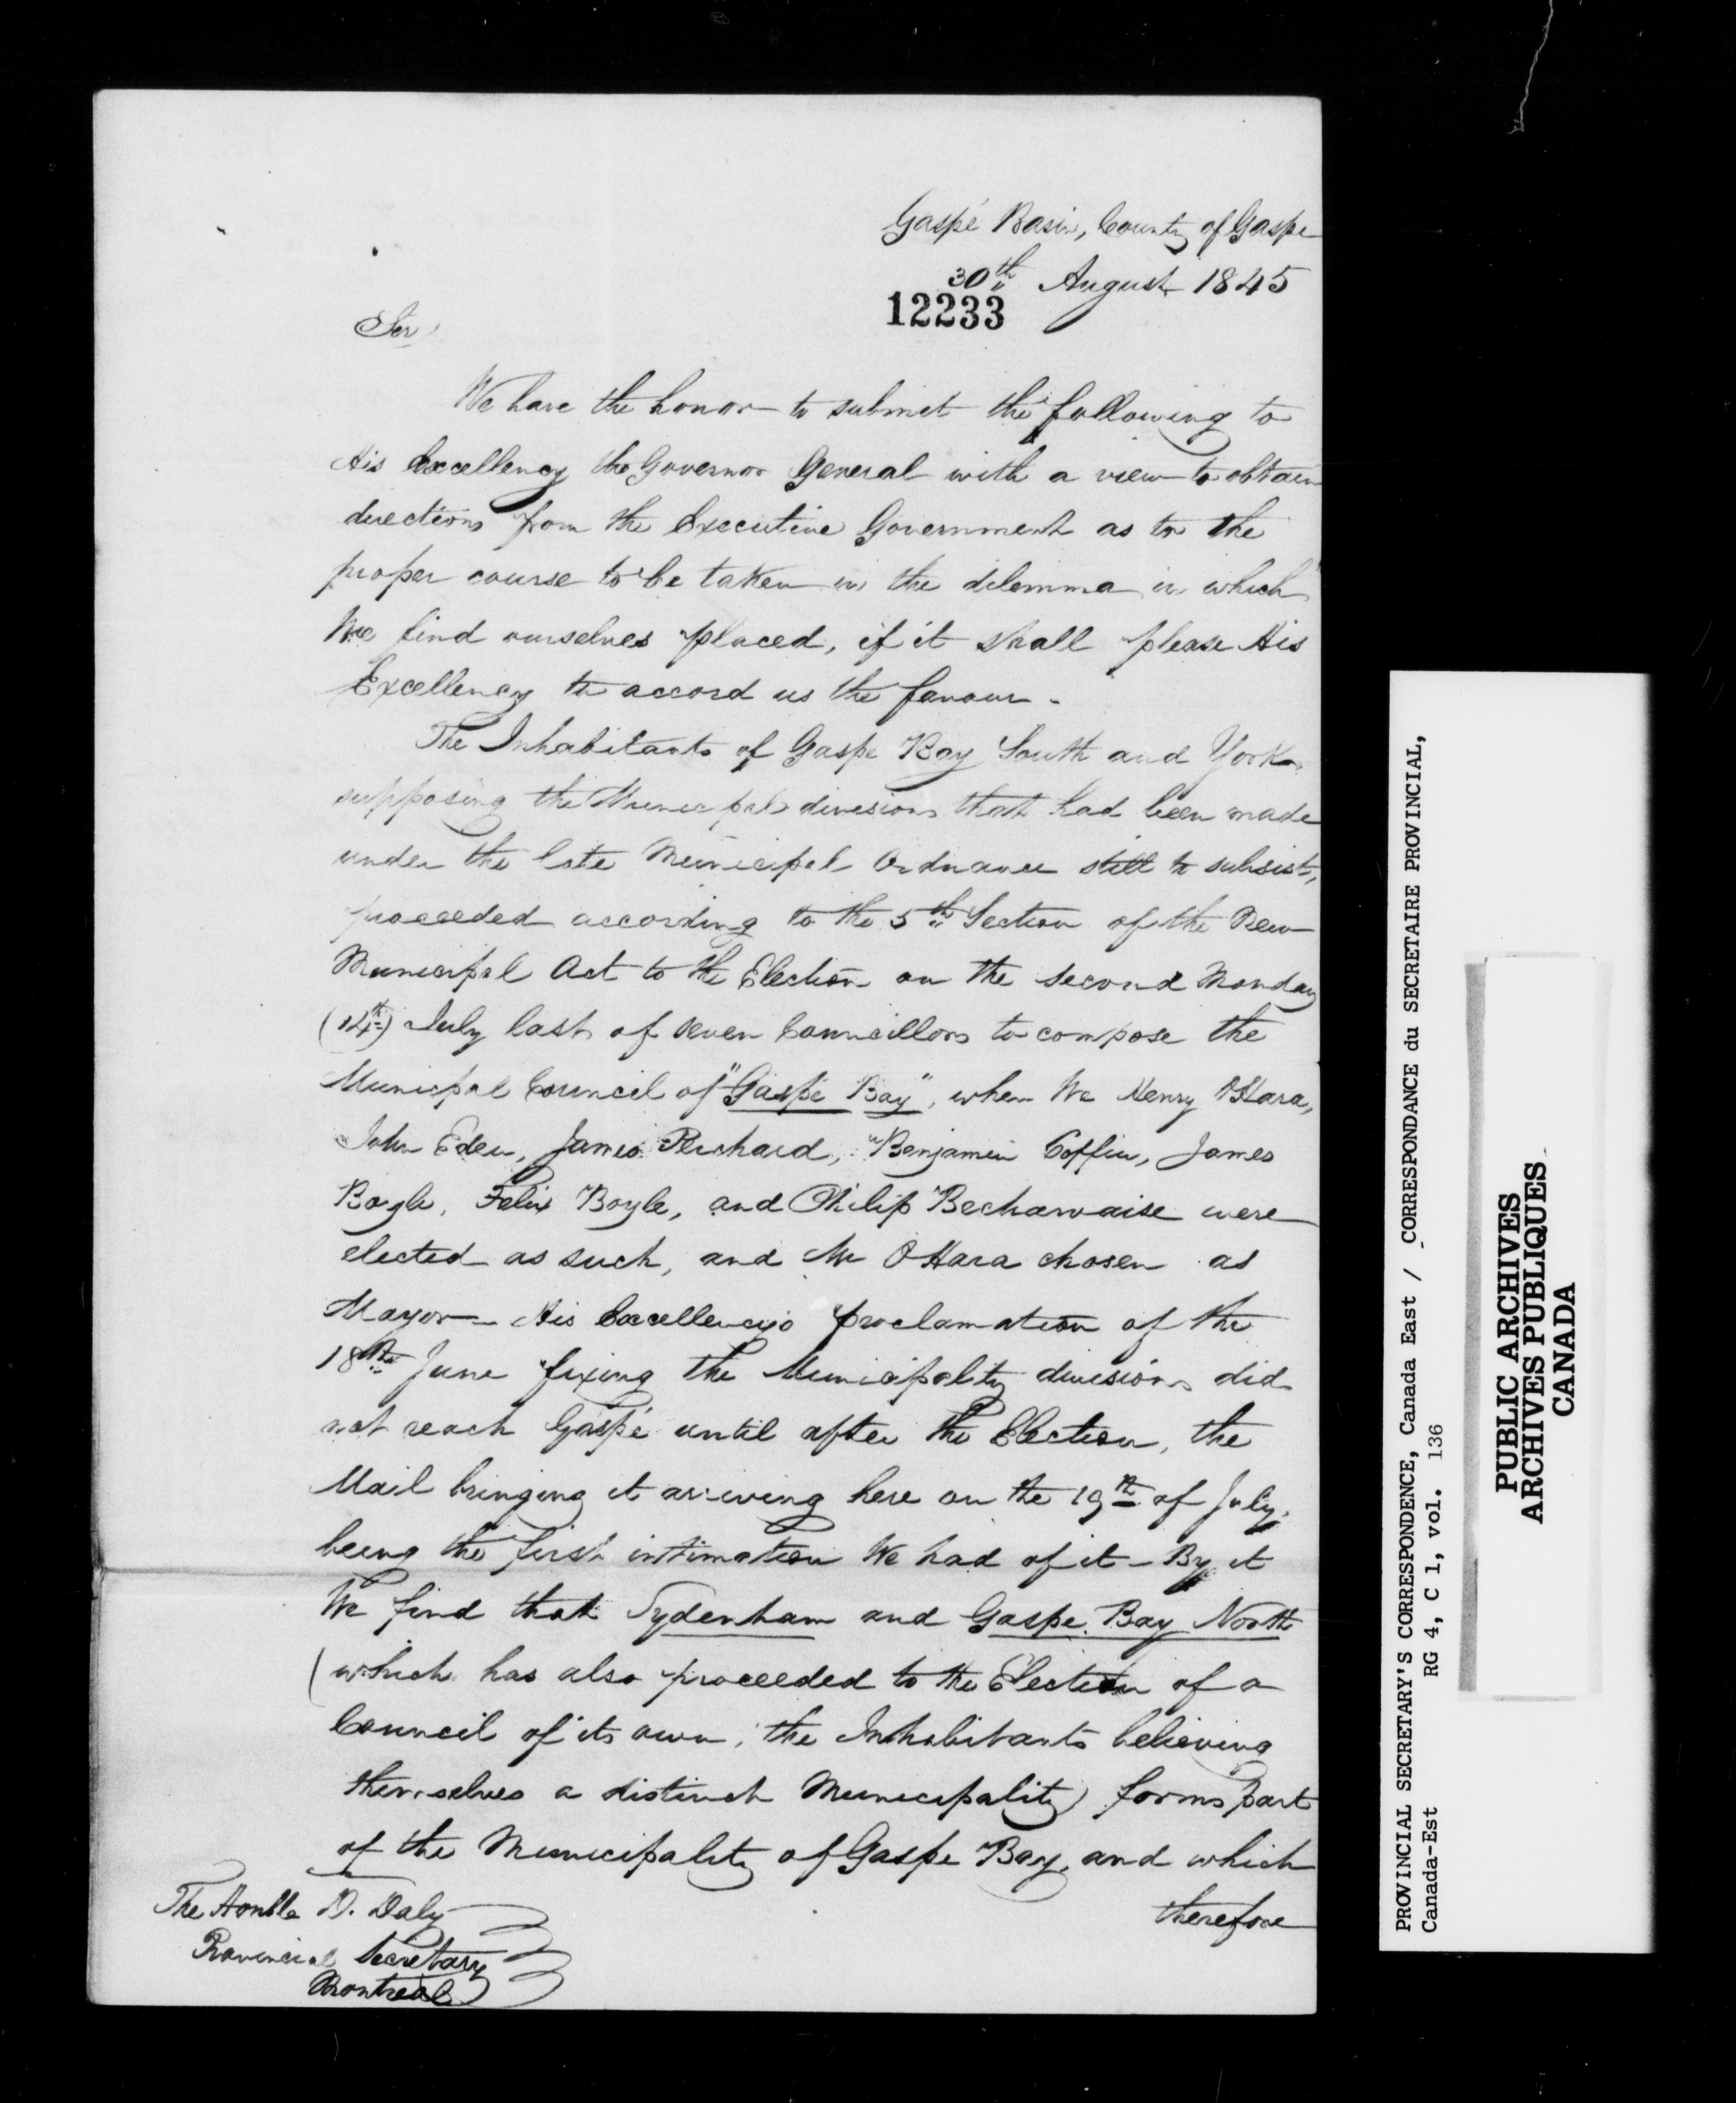 Gaspé Basin, County of Gaspe
30th August 1845
12233
Sir
We have the honor to submit the following to
His Excellency the Governor General with a view to obtain
directions from the Executive Government as to the
proper course to be taken in the dilemma in which
We find ourselves placed, if it shall please His
Excellency to accord us the favour -
The Inhabitants of Gaspe Bay South and York
supposing the Municipal divisions that had been made
under the late Municipal Ordnance still to subsist,
proceeded according to the 5th Section of the New
Municipal Act to the Election on the second Monday
(14th) July last of seven Councillors to compose the
Municipal Council of "Gaspé Bay", when We Henry OHara,
John Eden, James Perchard, Benjamin Coffin, James
Boyle, Felix Boyle, and Philip Bechervaise were
elected as such, and Mr OHara chosen as
Mayor - His Excellency's proclamation of the
18th June fixing the Municipality divisions did
not reach Gaspé until after the Election, the
Mail bringing it arriving here on the 19th of July,
being the first intimation We had of it - By it
We find that Sydenham and Gaspe Bay North
(which has also proceeded to the Election of a
Council of its own, the Inhabitants believing
themselves a distinct Municipality) forms part
of the Municipality of Gaspe Bay, and which
therefore
The Honble D. Daly
Provincial Secretary
Montreal
PROVINCIAL SECRETARY'S CORRESPONDENCE, Canada East / CORRESPONDANCE du SECRETAIRE PROVINCIAL,
Canada-Est RG 4, C 1, vol. 136
PUBLIC ARCHIVES
ARCHIVES PUBLIQUES
CANADA